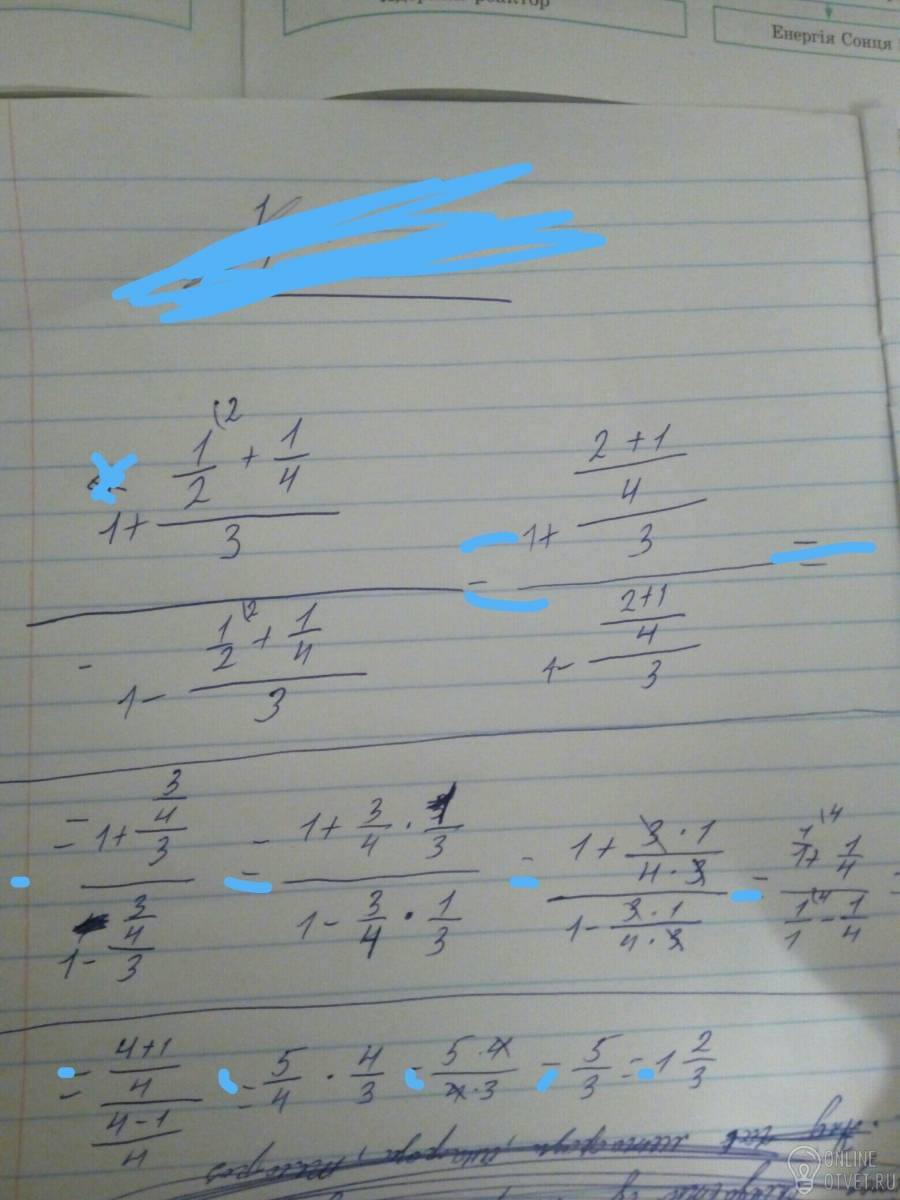 реактор
Енергія Сонця
1
\frac{1+\frac{\frac{1}{2}^{(2}+\frac{1}{4}}{3}}{1-\frac{\frac{1}{2}^{(2}+\frac{1}{4}}{3}} = \frac{1+\frac{\frac{2+1}{4}}{3}}{1-\frac{\frac{2+1}{4}}{3}} =
= \frac{1+\frac{\frac{3}{4}}{3}}{1-\frac{\frac{3}{4}}{3}} = \frac{1+\frac{3}{4}\cdot\frac{1}{3}}{1-\frac{3}{4}\cdot\frac{1}{3}} = \frac{1+\frac{3\cdot1}{4\cdot3}}{1-\frac{3\cdot1}{4\cdot3}} = \frac{\frac{1}{1}^{(4}+\frac{1}{4}}{\frac{1}{1}^{(4}-\frac{1}{4}} =
= \frac{\frac{4+1}{4}}{\frac{4-1}{4}} = \frac{5}{4}\cdot\frac{4}{3} = \frac{5\cdot4}{4\cdot3} = \frac{5}{3} = 1\frac{2}{3}
ONLINE
OTVET.RU